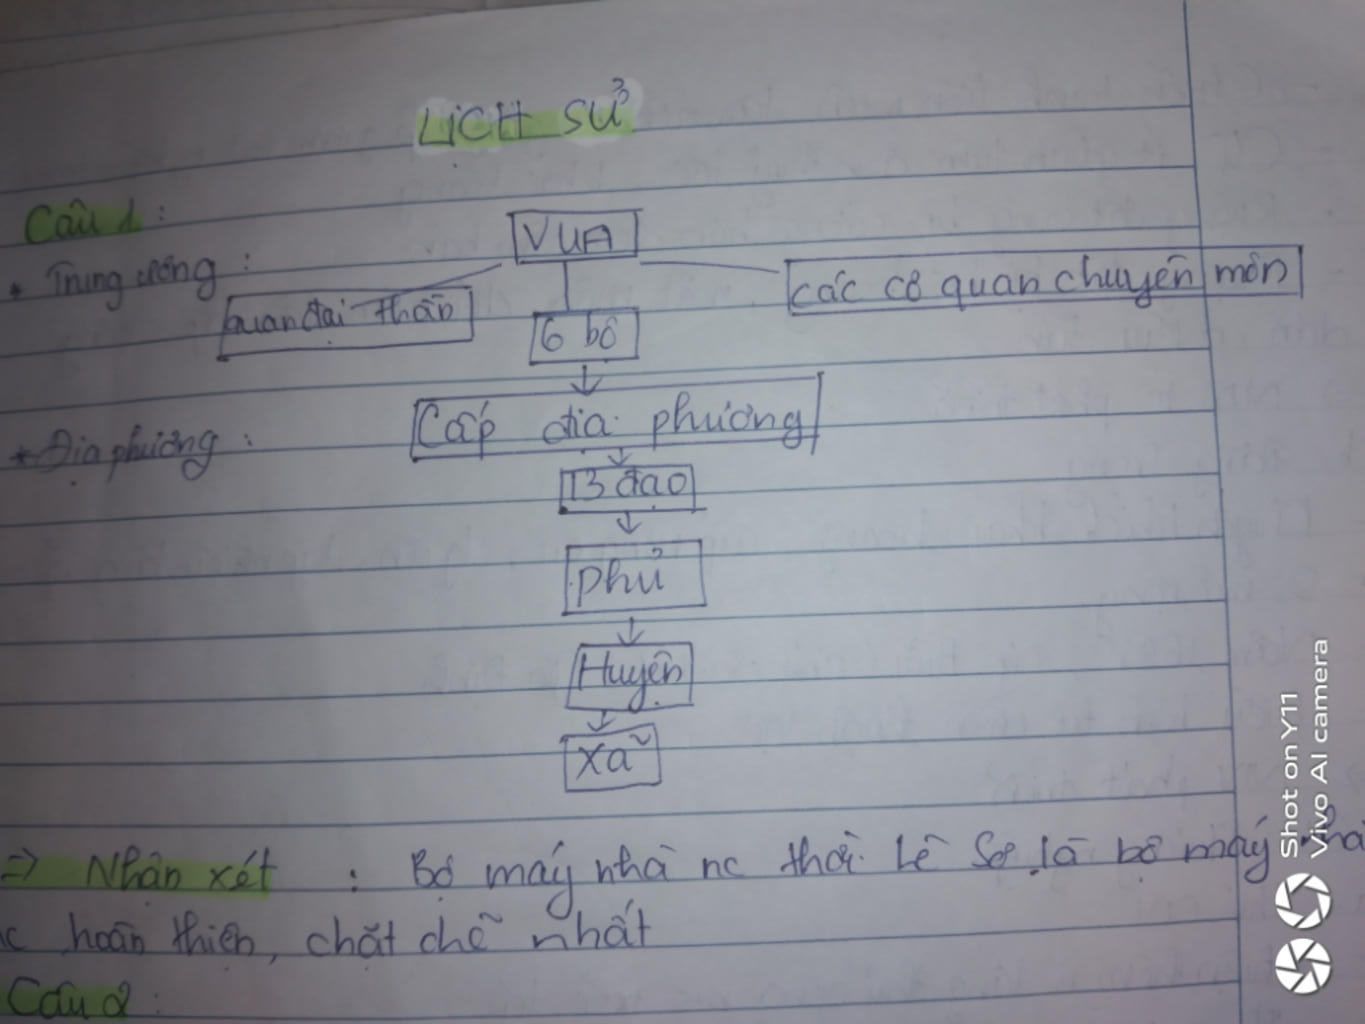 LỊCH SỬ
Câu 1:
VUA
* Trung ương:
các cơ quan chuyên môn
quan đại thần
6 bộ
* Địa phương:
Cấp địa phương
13 đạo
phủ
Huyện
xã
=> Nhận xét: Bộ máy nhà nc thời Lê Sơ là bộ máy
hoàn thiện, chặt chẽ nhất
Câu 2:
Shot on Y11
Vivo AI camera